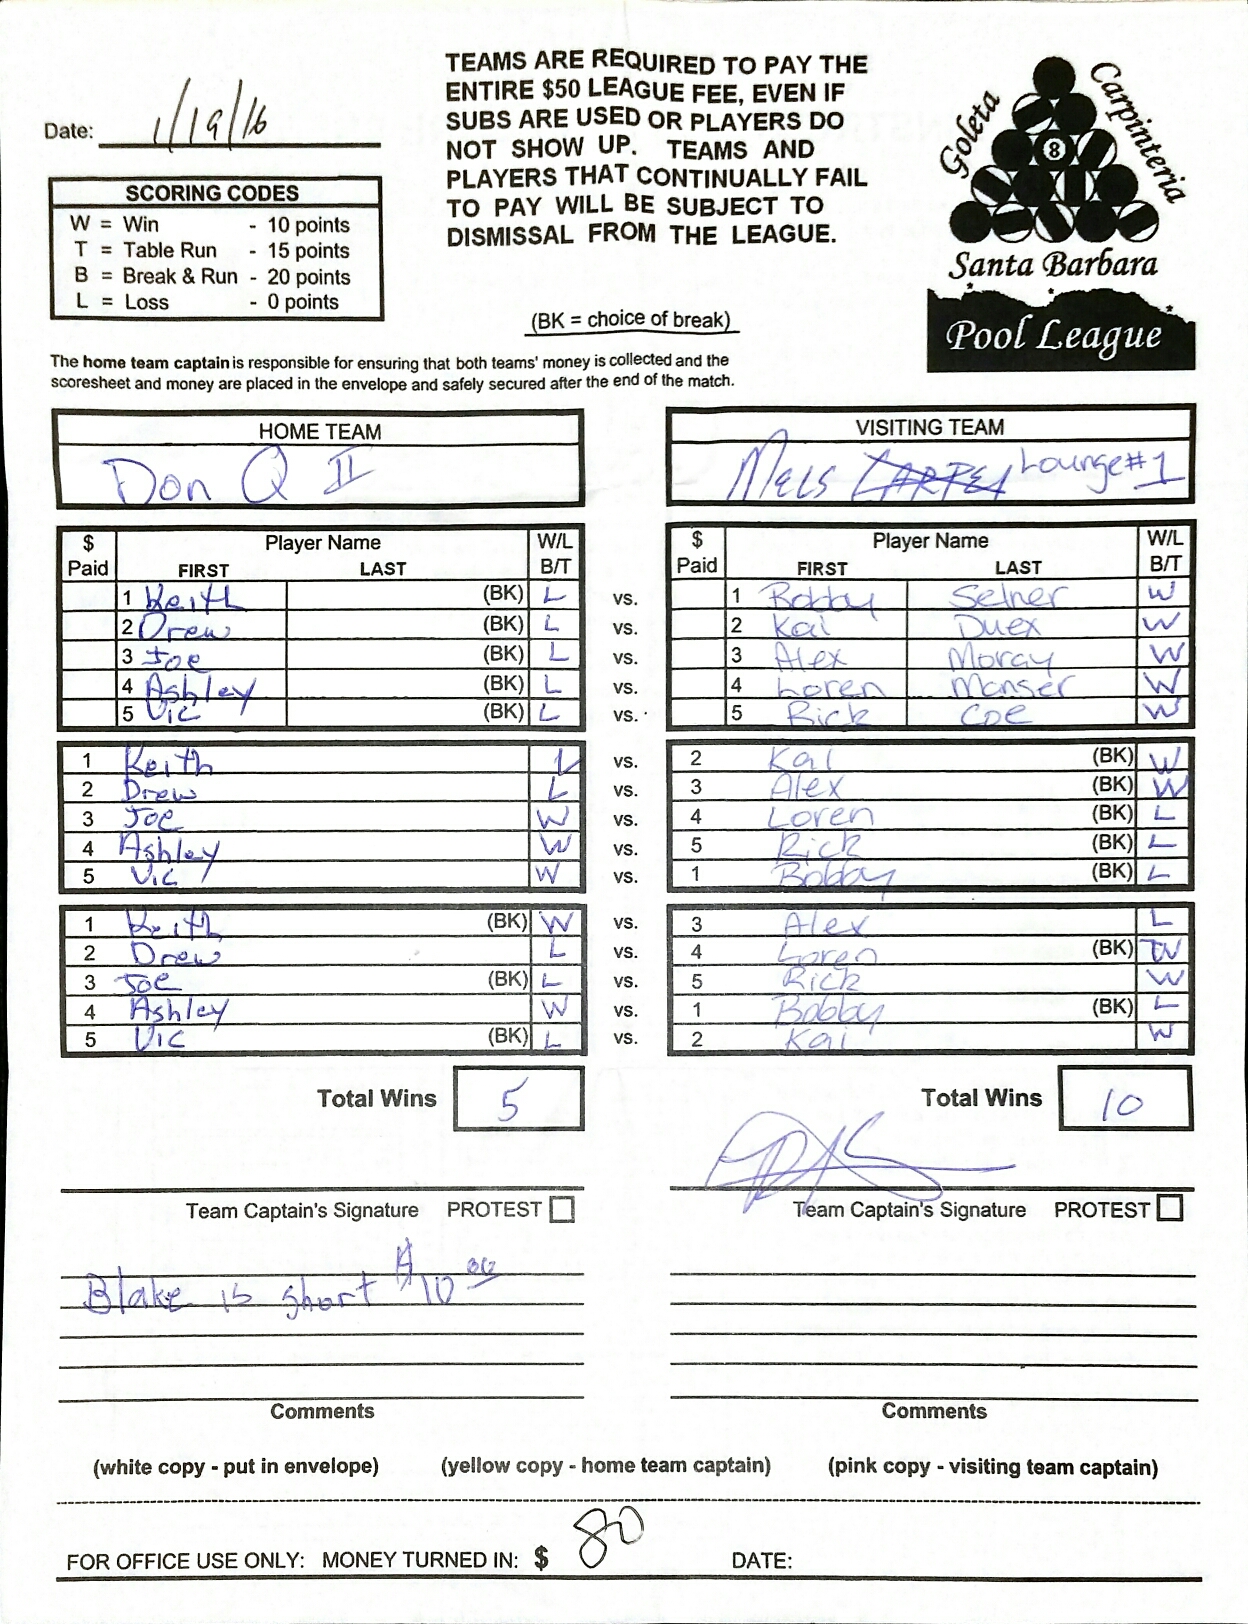 Date: 1/19/16
TEAMS ARE REQUIRED TO PAY THE
ENTIRE $50 LEAGUE FEE, EVEN IF
SUBS ARE USED OR PLAYERS DO
NOT SHOW UP. TEAMS AND
PLAYERS THAT CONTINUALLY FAIL
TO PAY WILL BE SUBJECT TO
DISMISSAL FROM THE LEAGUE.
Goleta
Carpinteria
8
Santa Barbara
Pool League
SCORING CODES
W = Win - 10 points
T = Table Run - 15 points
B = Break & Run - 20 points
L = Loss - 0 points
(BK = choice of break)
The home team captain is responsible for ensuring that both teams' money is collected and the
scoresheet and money are placed in the envelope and safely secured after the end of the match.
HOME TEAM VISITING TEAM
Don Q II Mels Lounge #1
$ Paid Player Name FIRST LAST W/L B/T $ Paid Player Name FIRST LAST W/L B/T
1 Keith (BK) L vs. 1 Bobby Selner W
2 Drew (BK) L vs. 2 Kai Duex W
3 Joe (BK) L vs. 3 Alex Moray W
4 Ashley (BK) L vs. 4 Loren Manser W
5 Vic (BK) L vs. 5 Rick Coe W
1 Keith L vs. 2 Kai (BK) W
2 Drew L vs. 3 Alex (BK) W
3 Joe W vs. 4 Loren (BK) L
4 Ashley W vs. 5 Rick (BK) L
5 Vic W vs. 1 Bobby (BK) L
1 Keith (BK) W vs. 3 Alex L
2 Drew L vs. 4 Loren (BK) W
3 Joe (BK) L vs. 5 Rick W
4 Ashley W vs. 1 Bobby (BK) L
5 Vic (BK) L vs. 2 Kai W
Total Wins 5 Total Wins 10
Team Captain's Signature PROTEST Team Captain's Signature PROTEST
Blake is short $10.00
Comments Comments
(white copy - put in envelope) (yellow copy - home team captain) (pink copy - visiting team captain)
FOR OFFICE USE ONLY: MONEY TURNED IN: $ 80 DATE: